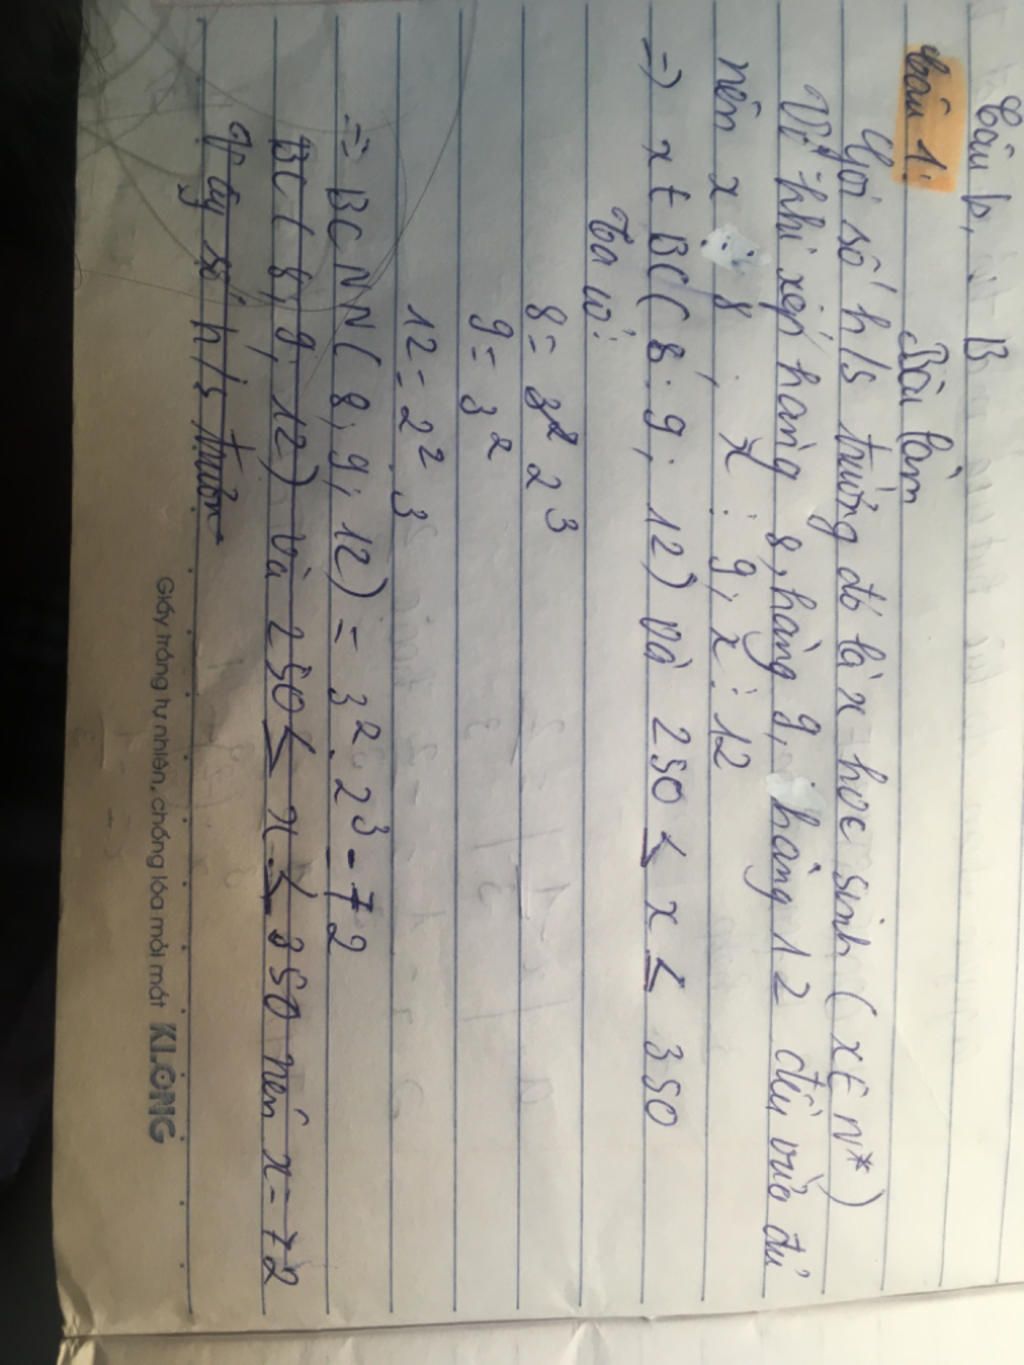 Câu b, B
Câu 1: Bài làm
Gọi số h/s trường đó là x học sinh (x ∈ N*)
Vì khi xếp hàng 8, hàng 9, hàng 12 đều vừa đủ
nên x ⋮ 8 ; x ⋮ 9; x ⋮ 12
=> x ∈ BC( 8; 9; 12) và 250 ≤ x ≤ 350
Ta có:
8 = 2 3
9 = 3²
12 = 2² . 3
=> BCNN( 8; 9; 12) = 3² . 2³ = 72
BC( 8; 9; 12) và 250 ≤ x ≤ 350 nên x = 72
Vậy số h/s trườn
Giấy trắng tự nhiên, chống lóa mỏi mắt KLONG